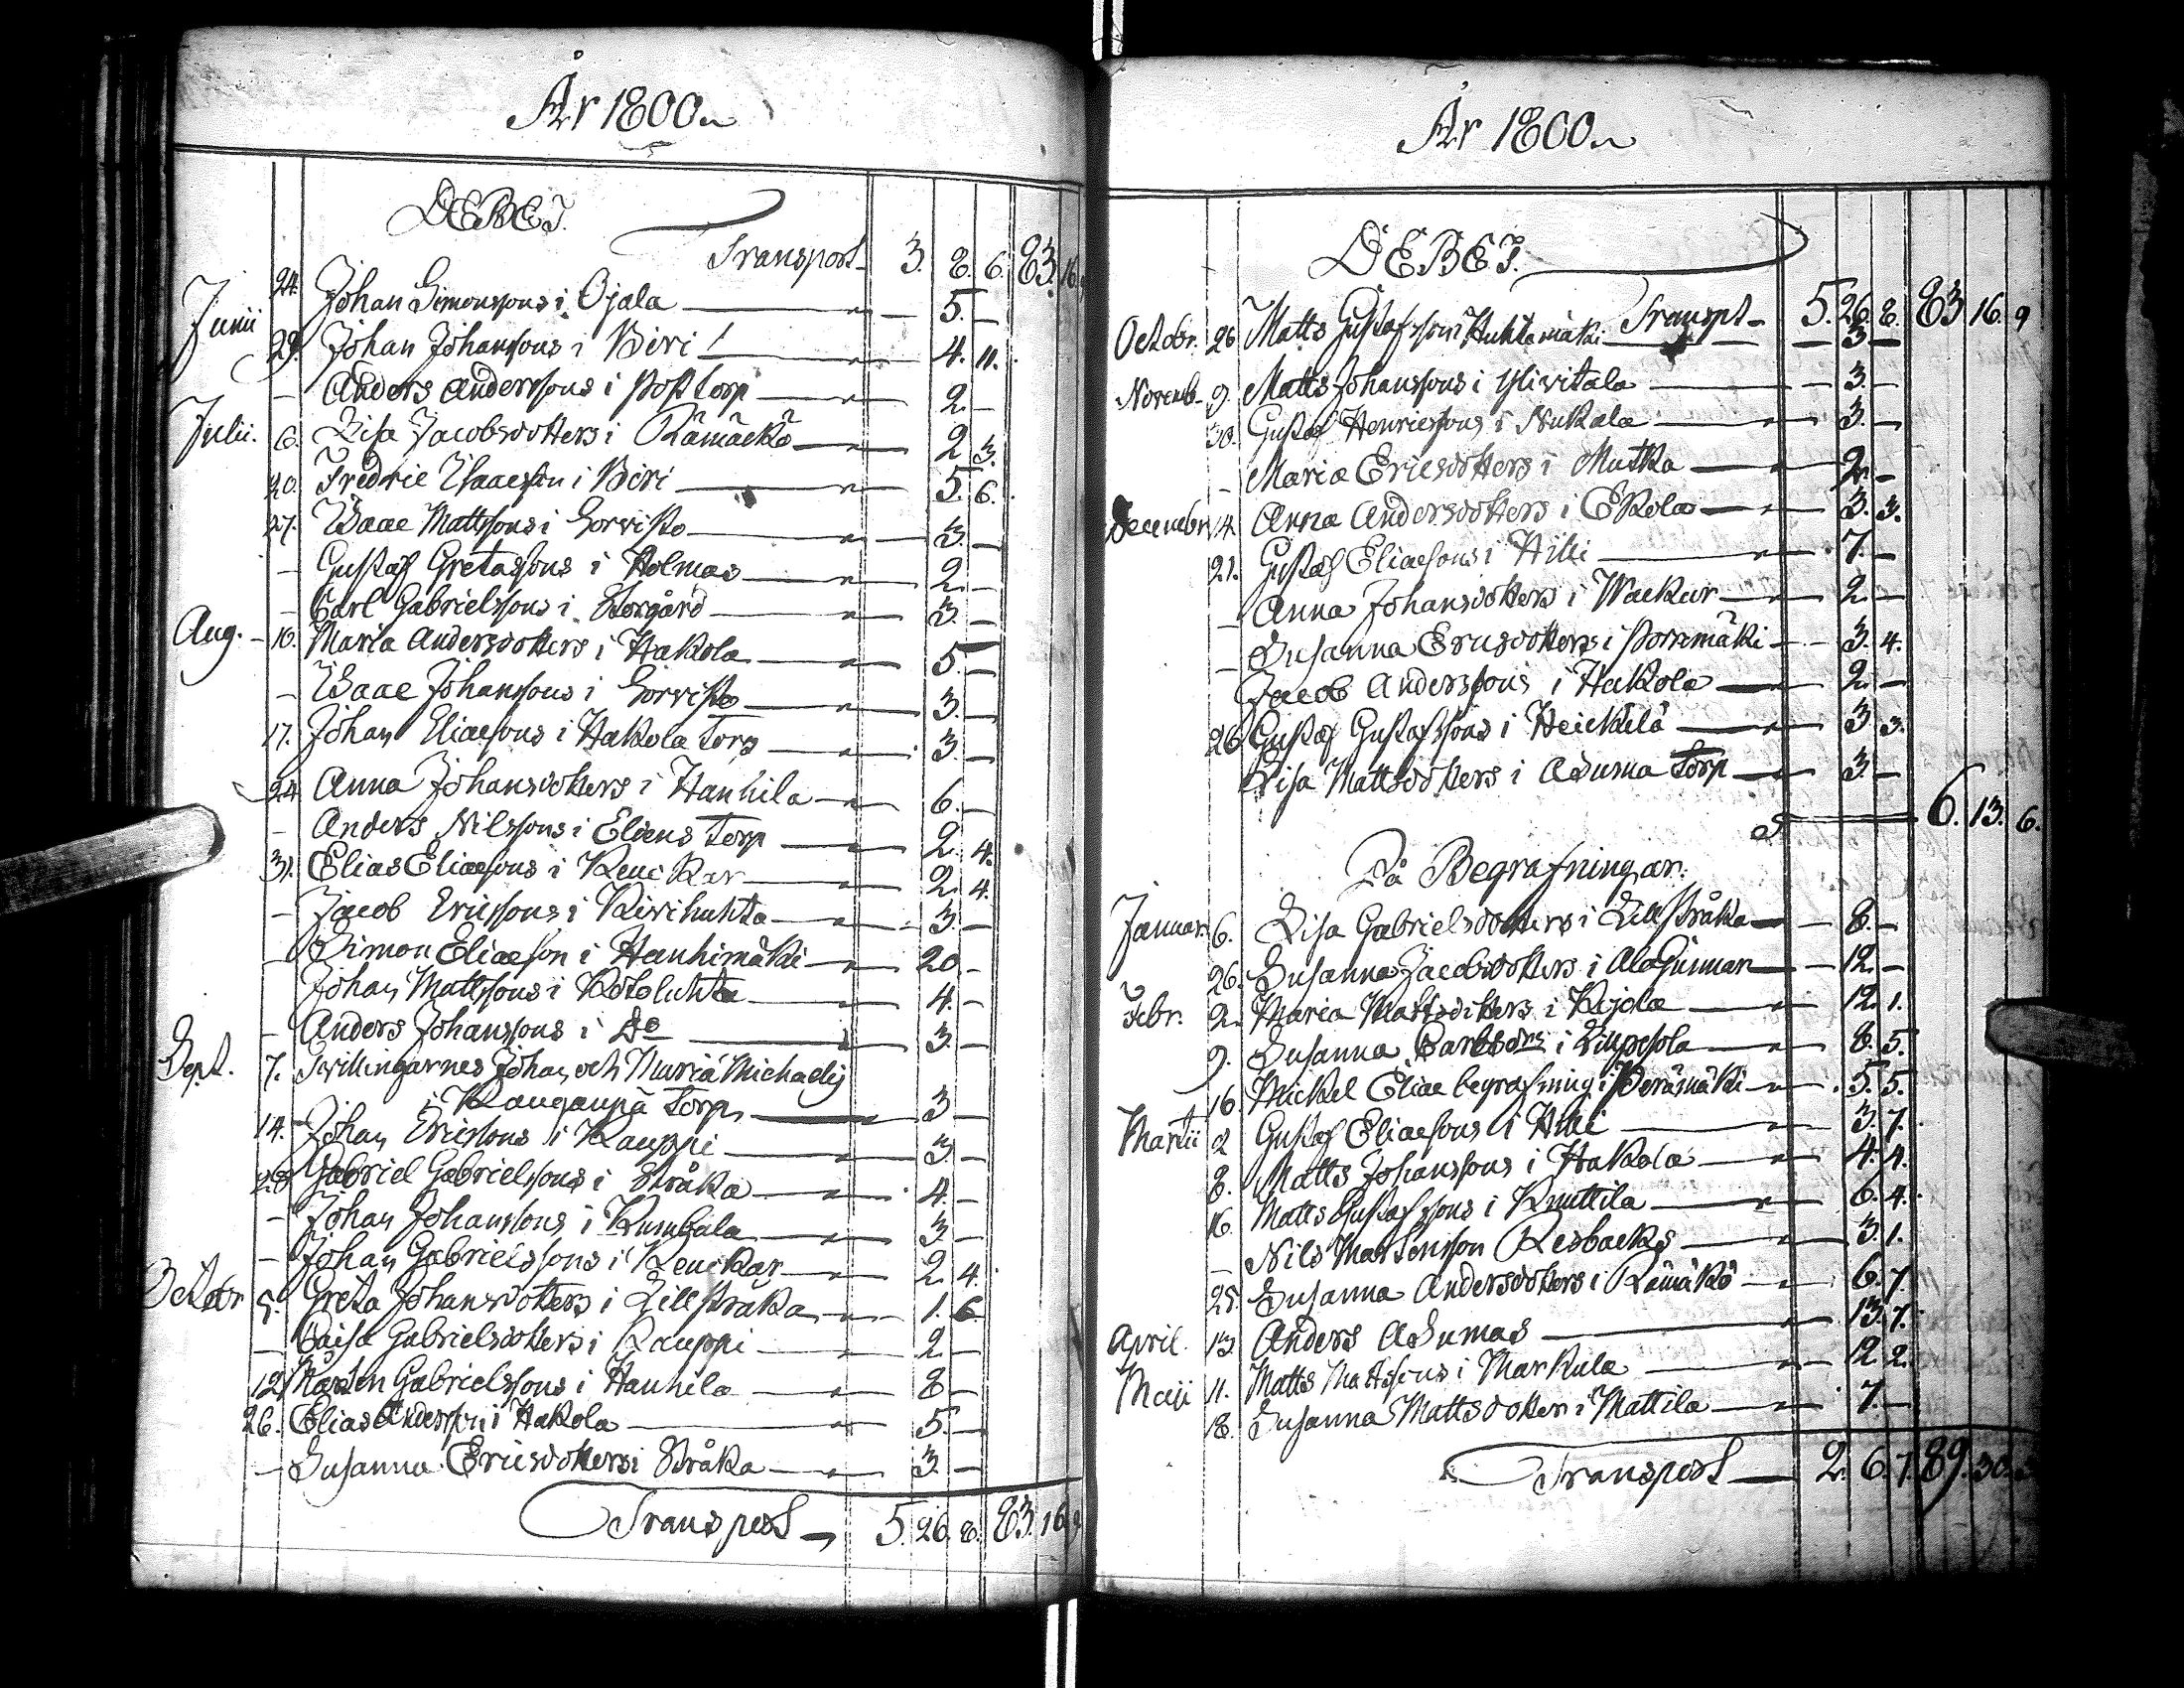 År 1800.
DEBET.
Transport 3. 8. 6. 83. 16.
Junii 24. Johan Simonssons i Ojala 5. —
29. Johan Johanssons i Biri 4. 11.
— Anders Anderssons i Posttorp 2. —
Julii. 6. Lisa Jacobsdotters i Rämäckö 2. 3.
20. Fredric Isaacsson i Biri 5. 6.
27. Isaac Mattssons i Sorvisto 3. —
— Gustaf Gretassons i Holmas 2. —
— Carl Gabrielssons i Storgård 3. —
Aug. 10. Maria Andersdotters i Hakola 5. —
— Isaac Johanssons i Sorvisto 3. —
17. Johan Eliaesons i Hakola Torp 3. —
24. Anna Johansdotters i Hanhila 6. —
— Anders Nilssons i Eliens Torp 2. 4.
31. Elias Eliaesons i Keuckar 2. 4.
— Jacob Ericssons i Kivihuhta 3. —
— Simon Eliaeson i Hanhimäki 20. —
Johan Mattssons i Kotoluhta 4. —
— Anders Johanssons i Do 3. —
Sept. 7. Tvillingarnes Johan och Maria Michaelis
i Kanganpä Torp 3. —
14. Johan Ericssons i Kauppi 3. —
28. Gabriel Gabrielssons i Stråka 4. —
— Johan Johanssons i Kumbula 3. —
— Johan Gabrielssons i Keuckar 2. 4.
Octobr 5. Greta Johansdotters i Lillstråka 1. 6.
— Caisa Gabrielsdotters i Kauppi 2. —
12. Mårten Gabrielssons i Hanhila 8. —
26. Elias Andersson i Hakola 5. —
— Susanna Ericsdotters i Stråka 3. —
Transport 5. 26. 8. 83. 16. 9
År 1800.
DEBET.
Transpt 5. 26. 8. 83. 16. 9
Octobr. 26 Matts Gustafsson i Huhtamäki — 3. —
Novemb. 9. Matts Johanssons i Ylivitala — 3. —
30. Gustaf Henricssons i Nukala 3. —
— Maria Ericsdotters i Mutka 2. —
Decembr 14. Anna Andersdotters i Ekola 3. 3.
21. Gustaf Eliaesons i Hilli 7. —
— Anna Johansdotters i Wackur 2. —
— Susanna Ericsdotters i Porrmäki 3. 4.
Jacob Anderssons i Hakola 2. —
26 Gustaf Gustafssons i Heickilä 3. 3.
Lisa Mattsdotters i Asuma Torp 3. —
6. 13. 6.
På Begrafningar.
Januar. 6. Lisa Gabrielsdotters i Lillstråka — 8. —
26. Susanna Jacobsdotters i Ala Gunnar — 12. —
Febr. 2. Maria Mattsdotters i Kojola 12. 1.
9. Susanna Carlsdrs i Luppola 8. 5.
16 Mickel Eliae begrafning i Peräsmäki 5. 5.
Martii 2 Gustaf Eliaesons i Hilli 3. 7.
8. Matts Johanssons i Hakola 4. 4.
16. Matts Gustafssons i Knuttila 6. 4.
— Nils Mårtensson Resbacks 3. 1.
25. Susanna Andersdotters i Rämäkö 6. 7.
April. 13. Anders Asumas 13. 7.
Maji 11. Matts Mattssons i Markula 12. 2.
18. Susanna Mattsdotter i Mattila 7. —
Transport 2. 6. 7. 89. 30.